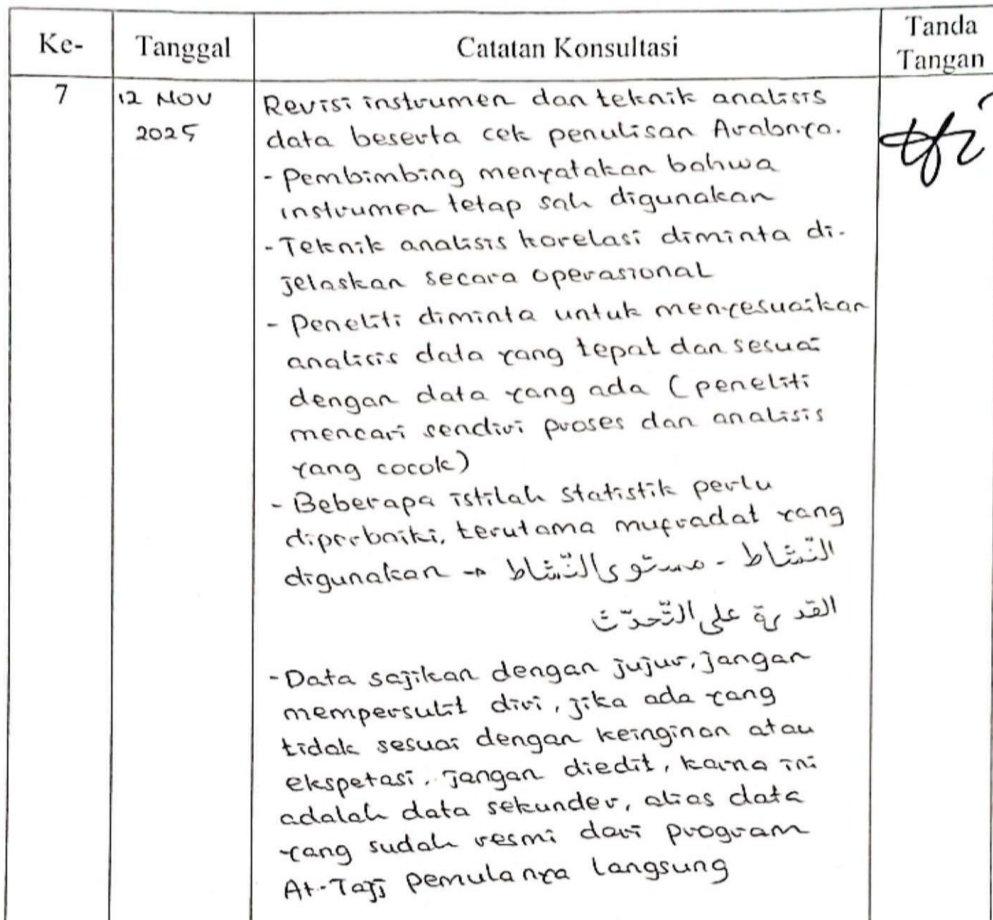 Ke-
Tanggal
Catatan Konsultasi
Tanda
Tangan
7
12 NOV
2025
Revisi instrumen dan teknik analisis
data beserta cek penulisan Arabnya.
- Pembimbing menyatakan bahwa
instrumen tetap sah digunakan
- Teknik analisis korelasi diminta di-
jelaskan secara operasional
- Peneliti diminta untuk menyesuaikan
analisis data yang tepat dan sesuai
dengan data yang ada (peneliti
mencari sendiri proses dan analisis
yang cocok)
- Beberapa istilah statistik perlu
diperbaiki, terutama mufradat yang
digunakan → النّشاط - مستوى النّشاط
القدرة على التّحدّث
- Data sajikan dengan jujur, jangan
mempersulit diri, jika ada yang
tidak sesuai dengan keinginan atau
ekspetasi, jangan diedit, karna ini
adalah data sekunder, alias data
yang sudah resmi dari program
At-Tajj pemulanya langsung